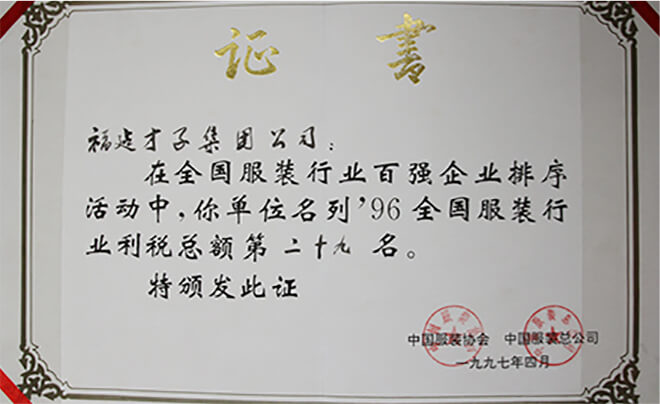 证书
福建才子集团公司：
在全国服装行业百强企业排序
活动中，你单位名列'96全国服装行
业利税总额第二十九名。
特颁发此证
中国服装协会 中国服装总公司
一九九七年四月